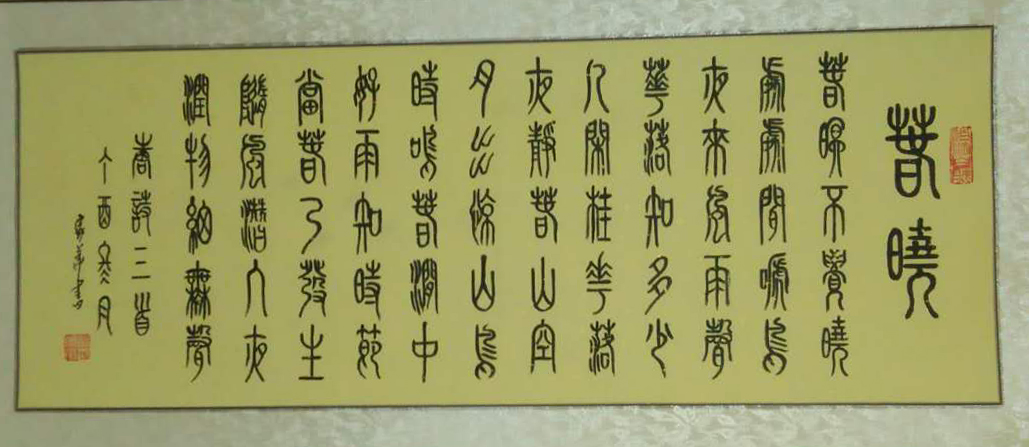 春曉
春眠不覺曉
處處聞啼鳥
夜來風雨聲
華落知多少
人閑桂花落
夜靜春山空
月出惊山鳥
時鳴春澗中
好雨知時節
當春乃發生
隨風潛入夜
潤物細無聲
春詩三首
丁酉冬月